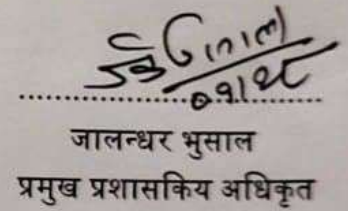 जालन्धर भुसाल
प्रमुख प्रशासकिय अधिकृत